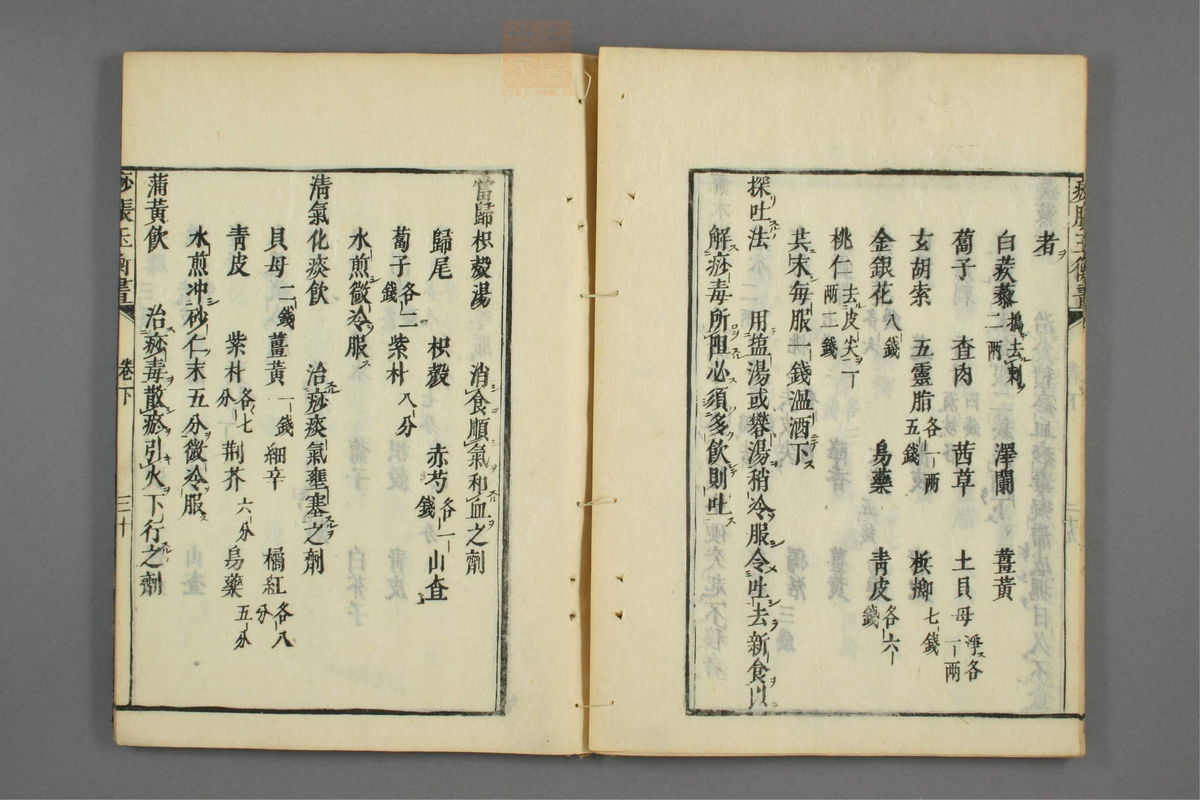 者
白蒺藜 搗去刺二兩 澤蘭 薑黃
蔔子 査肉 茜草 土貝母 淨各一兩
玄胡索 五靈脂 各一兩五錢 檳榔 七錢
金銀花 八錢 烏藥 青皮 各六錢
桃仁 去皮尖一兩二錢
共末每服一錢溫酒下
探吐法 用塩湯或礬湯稍冷服令吐去新食以
解痧毒所阻必須多飲則吐
當歸枳殼湯 消食順氣和血之劑
歸尾 枳殼 赤芍 各一錢 山査
蔔子 各二錢 紫朴 八分
水煎微冷服
清氣化痰飲 治痧痰氣壅塞之劑
貝母 二錢 薑黃 一錢 細辛 橘紅 各八分
青皮 紫朴 各七分 荆芥 六分 烏藥 五分
水煎冲砂仁末五分微冷服
蒲黃飲 治痧毒散瘀引火下行之劑
痧脹玉衡書 卷下 三十